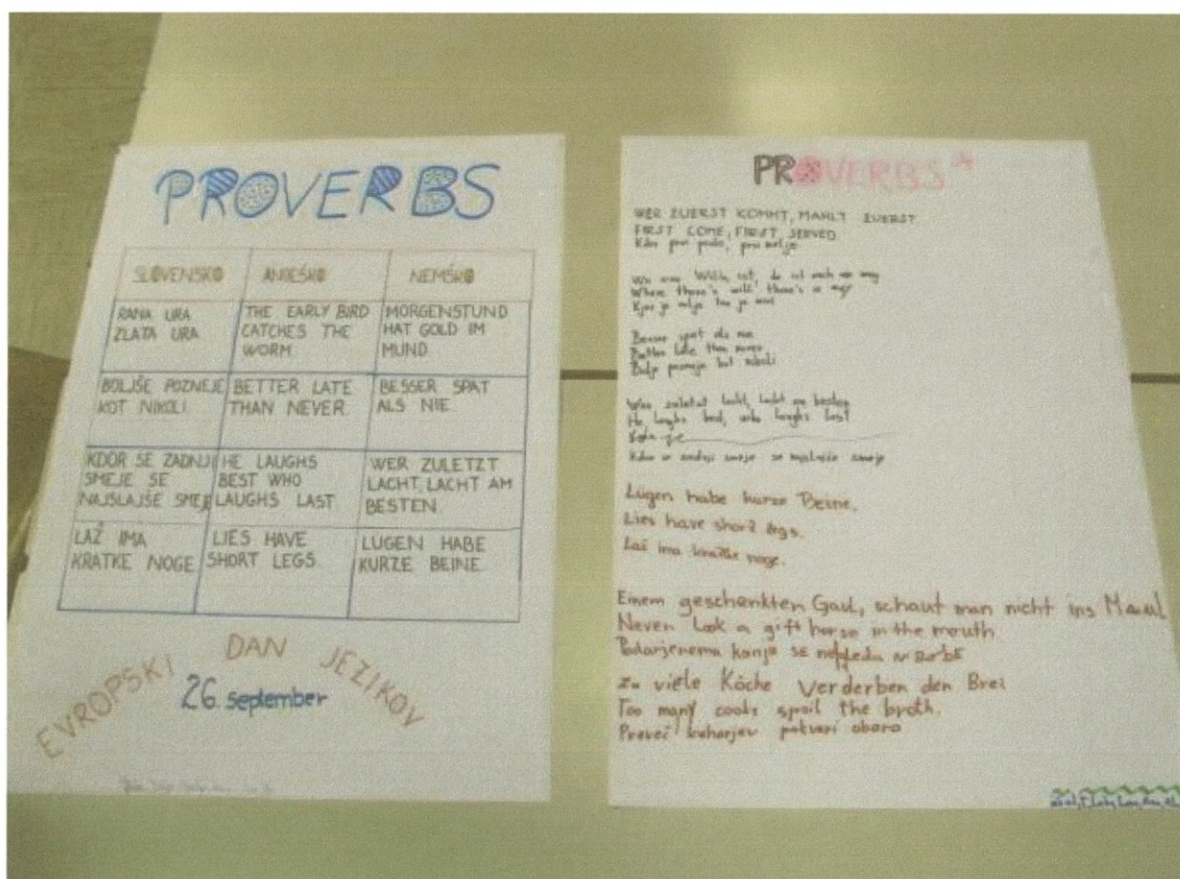 PROVERBS
SLOVENSKO ANGLEŠKO NEMŠKO
RANA URA
ZLATA URA
THE EARLY BIRD
CATCHES THE
WORM.
MORGENSTUND
HAT GOLD IM
MUND.
BOLJŠE POZNEJE
KOT NIKOLI.
BETTER LATE
THAN NEVER.
BESSER SPAT
ALS NIE.
KDOR SE ZADNJI
SMEJE SE
NAJSLAJŠE SMEJE
HE LAUGHS
BEST WHO
LAUGHS LAST.
WER ZULETZT
LACHT, LACHT AM
BESTEN.
LAŽ IMA
KRATKE NOGE
LIES HAVE
SHORT LEGS.
LUGEN HABE
KURZE BEINE.
EVROPSKI DAN JEZIKOV
26. september
PROVERBS
WER ZUERST KOMMT, MAHLT ZUERST.
FIRST COME, FIRST SERVED.
Kdor prvi pride, prvi melje
Where there's will, there's a way
Kjer je volja tam je
Besser spat als nie
Better late than never
Bolje pozneje kot nikoli
Wer zuletzt lacht, lacht am besten
He laughs best, who laughs last
Kdor se zadnji smeje se najslajše smeje
Lügen habe kurze Beine.
Lies have short legs.
Laž ima kratke noge.
Einem geschenkten Gaul, schaut man nicht ins Maul
Never Look a gift horse in the mouth
Podarjenemu konju se ne gleda v zobe
Zu viele Köche Verderben den Brei
Too many cooks spoil the broth.
Preveč kuharjev pokvari obaro